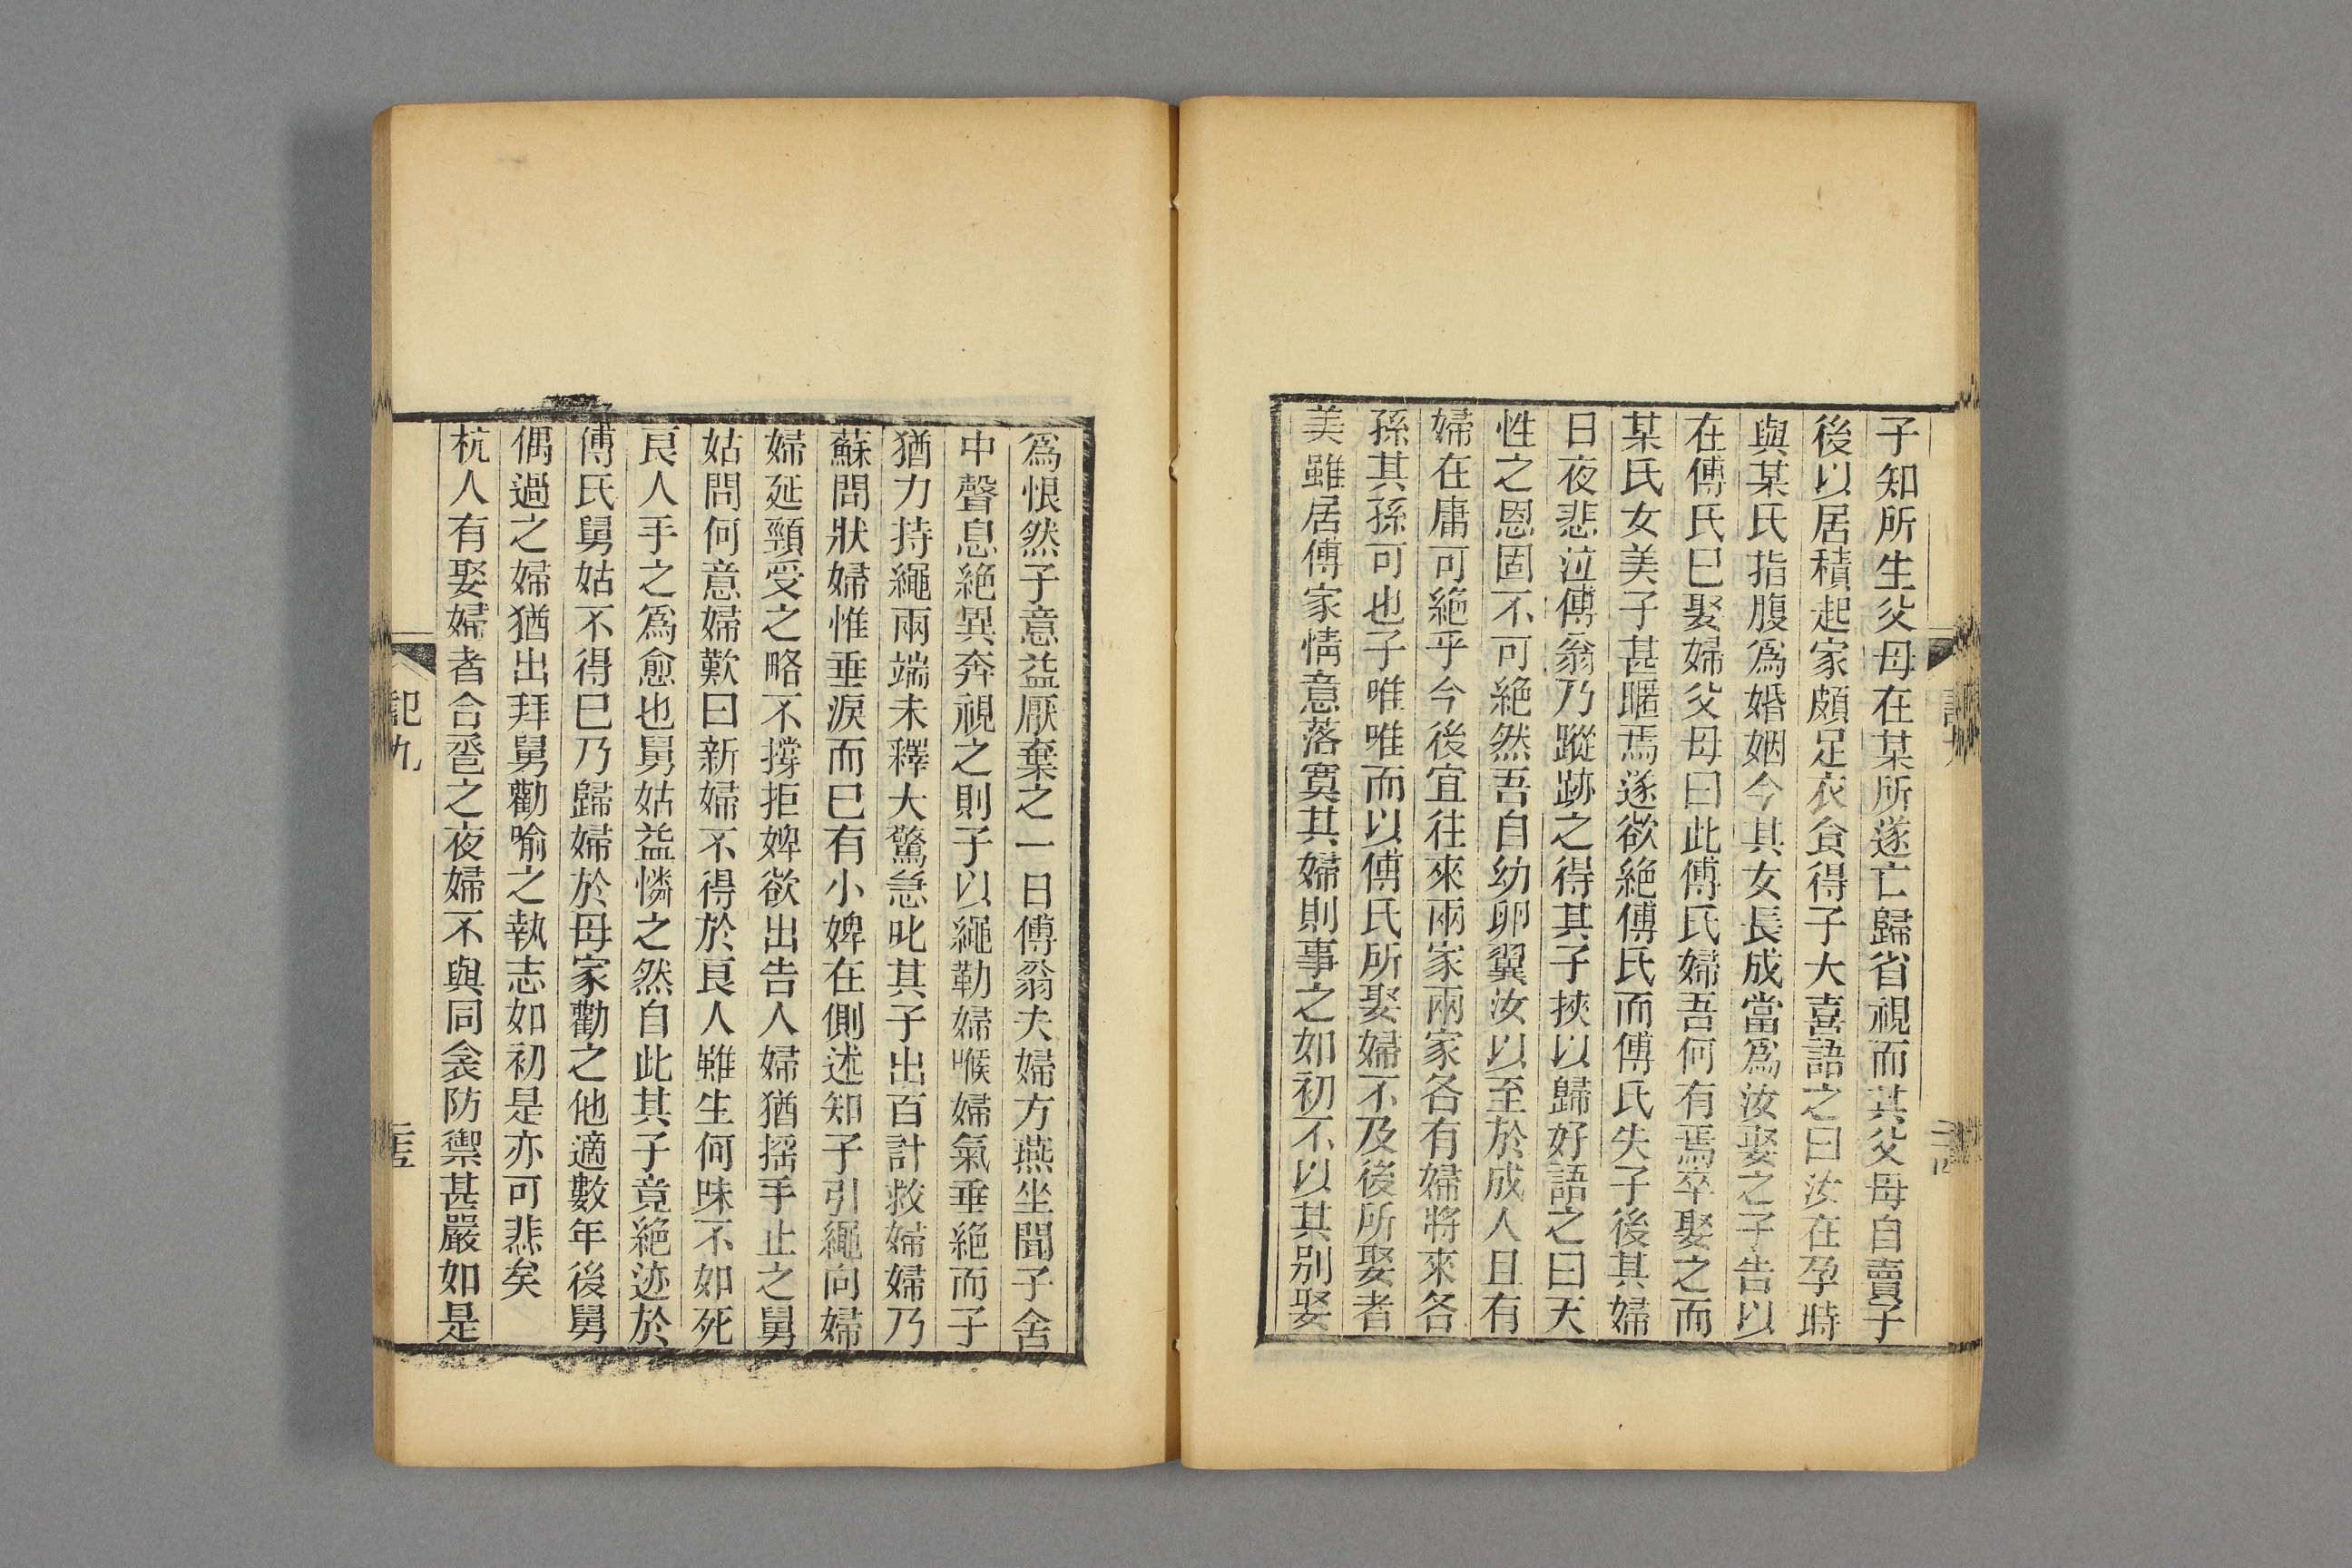 子知所生父母在某所遂亡歸省視而其父母自賣子
後以居積起家頗足衣食得子大喜語之曰汝在孕時
與某氏指腹爲婚姻今其女長成當爲汝娶之子告以
在傅氏巳娶婦父母曰此傅氏婦吾何有焉卒娶之而
某氏女美子甚暱焉遂欲絶傅氏而傅氏失子後其婦
日夜悲泣傅翁乃蹤跡之得其子挾以歸好語之曰天
性之恩固不可絶然吾自幼卵翼汝以至於成人且有
婦在庸可絶乎今後宜往來兩家兩家各有婦將來各
孫其孫可也子唯唯而以傅氏所娶婦不及後所娶者
美雖居傅家情意落寞其婦則事之如初不以其别娶
爲恨然子意益厭棄之一日傅翁夫婦方燕坐聞子舍
中聲息絶異奔視之則子以繩勒婦喉婦氣垂絶而子
猶力持繩兩端未釋大驚急叱其子出百計救婦婦乃
蘇問狀婦惟垂淚而巳有小婢在側述知子引繩向婦
婦延頸受之略不撐拒婢欲出告人婦猶摇手止之舅
姑問何意婦歎曰新婦不得於良人雖生何味不如死
良人手之爲愈也舅姑益憐之然自此其子竟絶迹於
傅氏舅姑不得巳乃歸婦於母家勸之他適數年後舅
偶過之婦猶出拜舅勸喻之執志如初是亦可悲矣
杭人有娶婦者合巹之夜婦不與同衾防禦甚嚴如是
記九